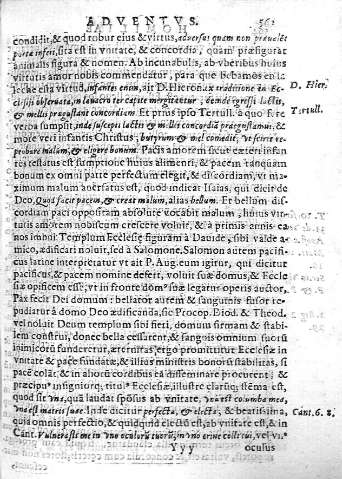 ADVENTVS. 561
condidit, & quod robur eius & virtus, aduersus quam non præualet
portæ inferi, sita est in vnitate, & concordia, quam præfigurat
animalis figura & nomen. Ab incunabulis, ab vberibus huius
virtutis amor nobis commendatur, para que bebamos en la
leche esta virtud, infantes enim, ait D. Hieron. ex traditione in Ec-
clesiis obseruata, in lauacro ter capite mergitantur, deinde egressi lactis,
& mellis prægustant concordiam. Et prius ipso Tertull. à quo fere
verba sumpsit, inde suscepti lactis & mellis concordiã prægustamus, &
more veri infantis Christus, butyrum, & mel comedet, vt sciret re-
probare malum, & eligere bonum. Pacis amorem sicut exteri infan-
tes testatus est sumptione huius alimenti, & pacem tanquam
bonum ex omni parte perfectum elegit, & discordiam, vt ma-
ximum malum auersatus est, quod indicat Isaias, qui dicit de
Deo. Qui facit pacem, & creat malum, alias bellum. Et bellum dis-
cordiam paci oppositam absolute vocabit malum, huius vir-
tutis amorem nobiscum crescere voluit, & à primis annis ea
nos imbui. Templum Ecclesiæ figuram à Dauide, sibi valde a-
mico, ædificari noluit, sed à Salomone. Salomon autem pacifi-
cus latine interpretatur vt ait P. Aug. eum igitur, qui dicitur
pacificus, & pacem nomine defert, voluit suæ domus, & Eccle
siæ opificem esse, vt in fronte domꝰ suæ legatur operis auctor.
Pax fecit Dei domum: bellator autem & sanguinis fusor re-
pudiatur à domo Deo ædificanda, sic Procop. Biod. & Theod.
vel noluit Deum templum sibi fieri, domum firmam & stabi-
lem construi, donec bella cessarent, & sangois omnium suorũ
inimicorũ funderetur, æternitas ergo promittitur Ecclesiæ in
vnitate & pace fundatæ, & illius ministris bonorũ stabilitas, si
pacẽ colãt, & in ahorũ cordibus eã disseminare procurent; &
præcipuꝰ insignioq; tituꝰ Ecclesiæ, illustre clarũq; stẽma est,
quod sit vna, quã laudat spõsus ab vnitate, vna est columba mea,
vna est matris suæ. Inde dicitur perfecta, & electa, & beatissima,
quia omnis perfectio, & quidquid electũ est, ab vnitate est, & in
Cant. Vulnerasti me in vno oculorũ tuorũ, in vno crine colli tui, vel vnꝰ
Yyy oculus
D. Hier.
Tertull.
Cant. 6. 8.